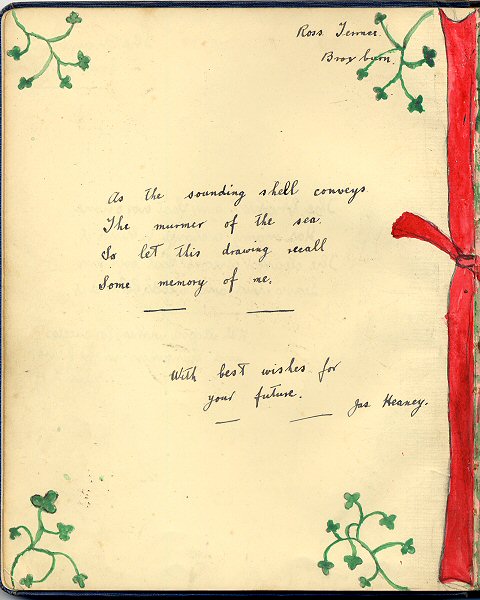 Ross Terrace.
Broxburn.
As the sounding shell conveys
The murmer of the sea.
So let this drawing recall
Some memory of me.
With best wishes for
your future.
Jas Heaney.